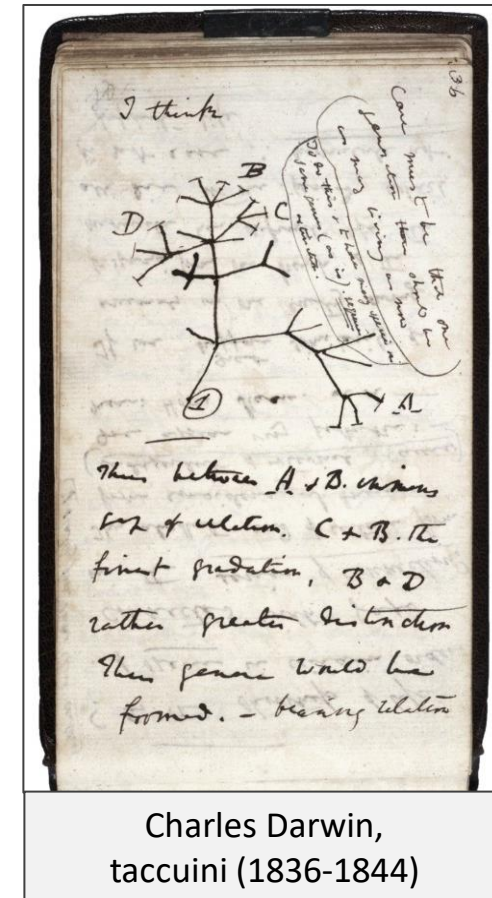 36
I think
Case must be that one
generation then should be
as many living as now
To do this & to have many species in
same genus (as is), requires
extinction.
B
D
C
1
A
Thus between A & B. immens
gap of relation. C & B. the
finest gradation, B & D
rather greater distinction
Thus genera would be
formed. — bearing relation
Charles Darwin,
taccuini (1836-1844)